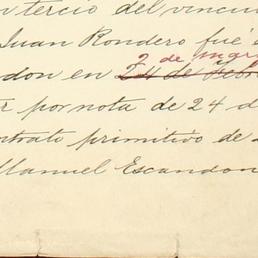 n tercio del vincu
Juan Rondero fué
2 de mar
don en 24 de Febr
r por nota de 24 d
ntrato primitivo de
Manuel Escandon